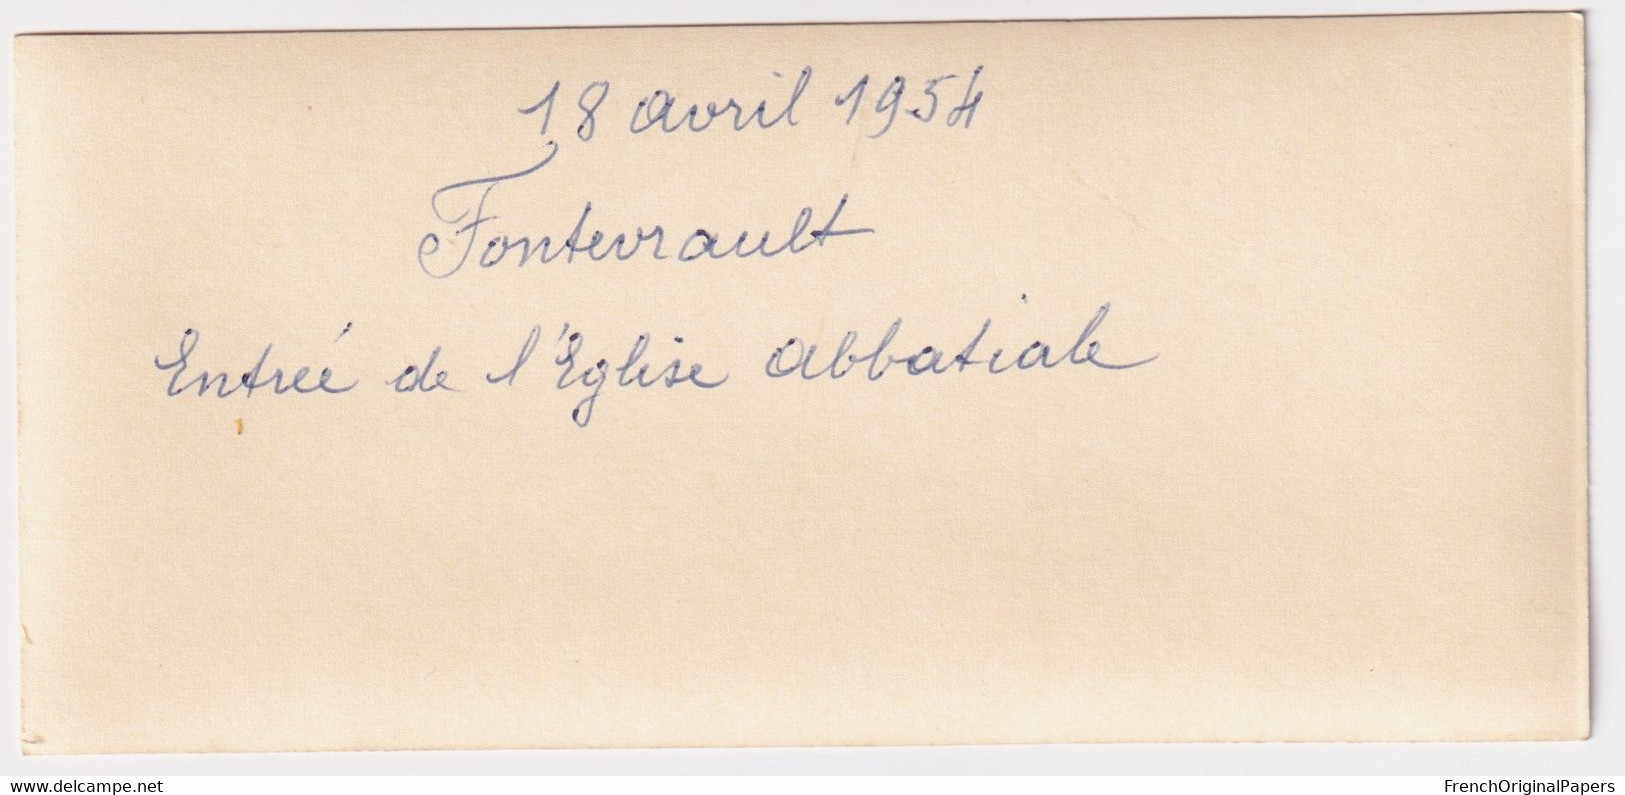 18 avril 1954
Fontevrault
Entrée de l'Eglise abbatiale
delcampe.net
FrenchOriginalPapers